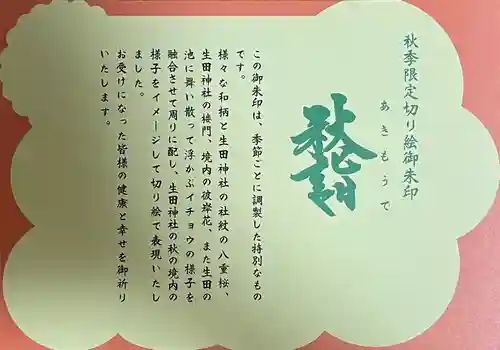 秋季限定切り絵御朱印
あきもうで
秋詣
この御朱印は、季節ごとに調製した特別なもの
です。
様々な和柄と生田神社の社紋の八重桜、
生田神社の楼門、境内の彼岸花、また生田の
池に舞い散って浮かぶイチョウの様子を
融合させて周りに配し、生田神社の秋の境内の
様子をイメージして切り絵で表現いたし
ました。
お受けになった皆様の健康と幸せを御祈り
いたします。